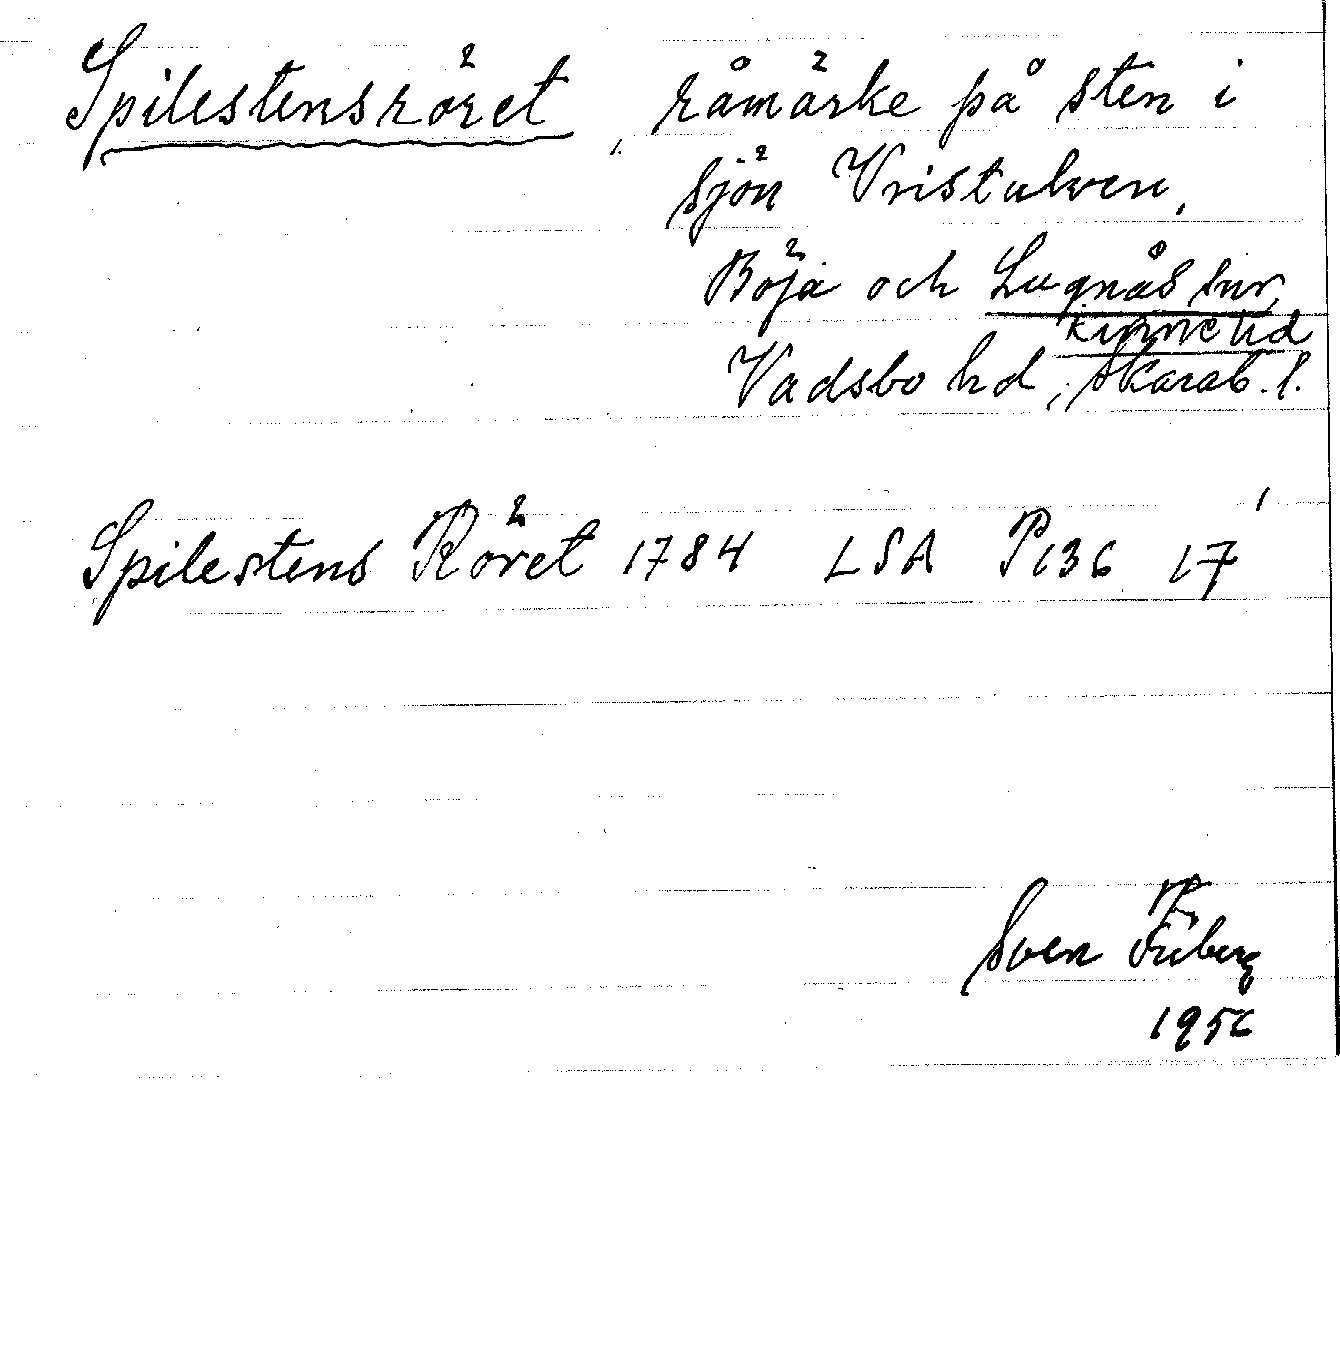 Spilestensröret, råmärke på sten i
sjön Vristulven,
Böja och Lugnås snr,
Kinne hd
Vadsbo hd, Skarab. l.
Spilestens Röret 1784 LSA P136 17¹
Sven Friberg
1956